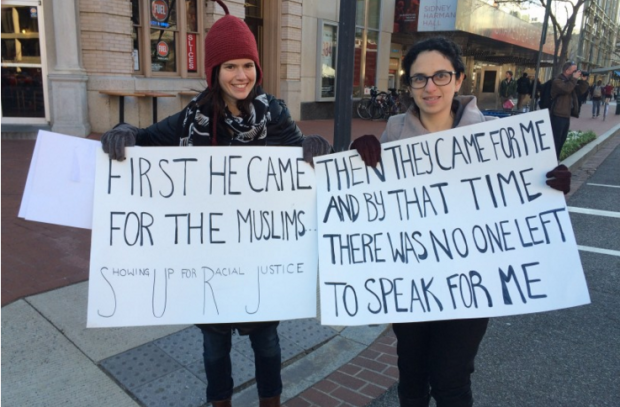 FIRST HE CAME
FOR THE MUSLIMS...
SHOWING UP FOR RACIAL JUSTICE
THEN THEY CAME FOR ME
AND BY THAT TIME
THERE WAS NO ONE LEFT
TO SPEAK FOR ME
SIDNEY
HARMAN
HALL
FUEL